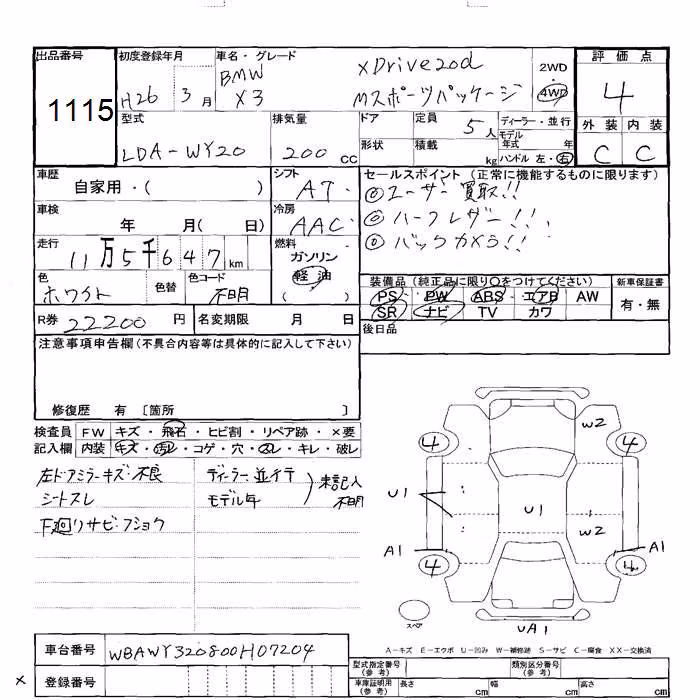 出品番号 初度登録年月 車名・グレード 評価点
1115 H26年 3月 BMW X3 xDrive20d Mスポーツパッケージ 2WD 4WD 4
型式 排気量 ドア 定員 ディーラー・並行 外装 内装
LDA-WY20 200cc 5人 モデル年式 年 C C
形状 積載 kg ハンドル 左・右
車歴 シフト セールスポイント(正常に機能するものに限ります)
自家用・( ) AT ◎ユーザー買取!!
車検 冷房 ◎ハーフレザー!!!
年 月( 日) AAC ◎バックカメラ!!
走行 燃料
11万5千647km ガソリン
色 色替 色コード 軽油
ホワイト 不明 ( )
装備品(純正品に限り○をつけてください) 新車保証書
PS PW ABS エアB AW 有・無
SR ナビ TV カワ
R券 22200円 名変期限 月 日 後日品
注意事項申告欄(不具合内容等は具体的に記入して下さい)
修復歴 有 [箇所 ]
検査員 FW キズ・飛石・ヒビ割・リペア跡・×要
記入欄 内装 キズ・汚レ・コゲ・穴・スレ・キレ・破レ
左ドアミラーキズ・不良 ディーラー並行 未記入
シートスレ モデル年 不明
下廻りサビ・フショク
W2
4 4
U1 U1 W2
A1 A1
4 4
スペア UA1
A-キズ E-エクボ U-凹み W-補修跡 S-サビ C-腐食 XX-交換済
車台番号 WBAWY320800H07204
× 登録番号
型式指定番号(参考) 類別区分番号(参考)
車庫証明用(参考) 長さ cm 幅 cm 高さ cm